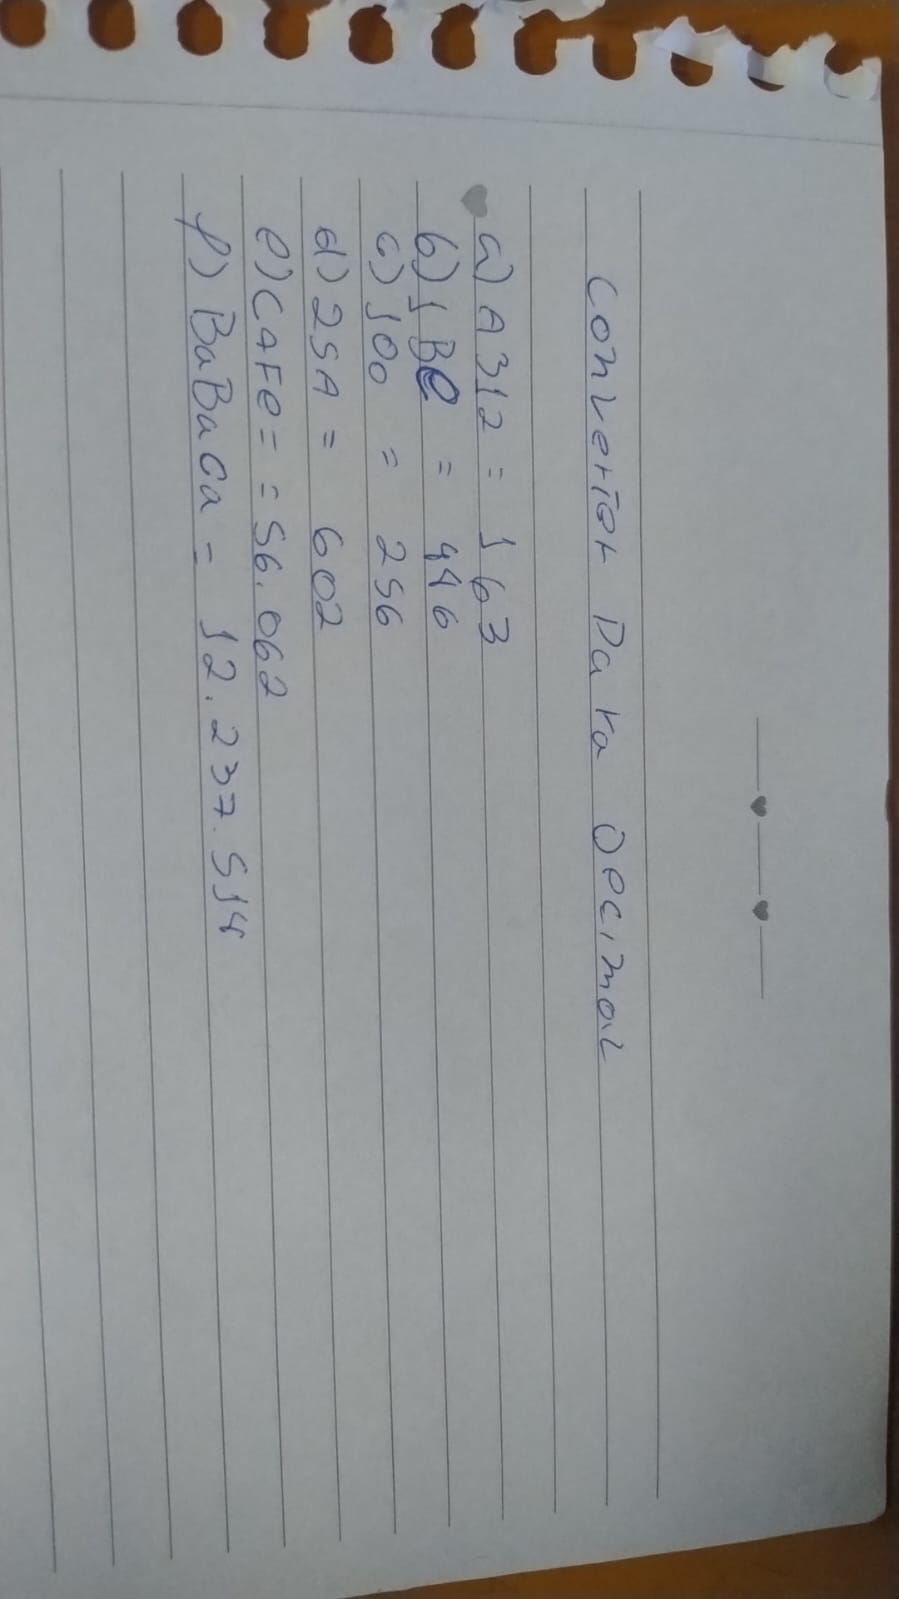 Converter Para Decimal
a) A312 = 163
b) 1BE = 446
c) 100 = 256
d) 25A = 602
e) CAFe = = 56.062
f) BaBaCa = 12.237.514